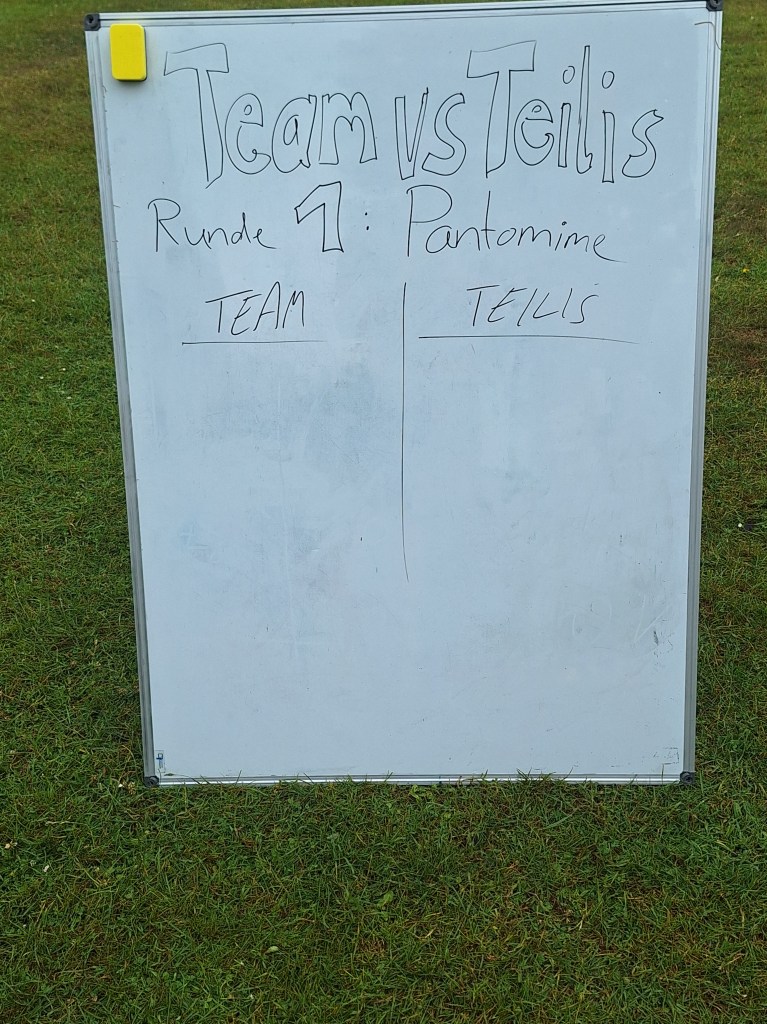 Team vs Teilis
Runde 1: Pantomime
TEAM TEILIS